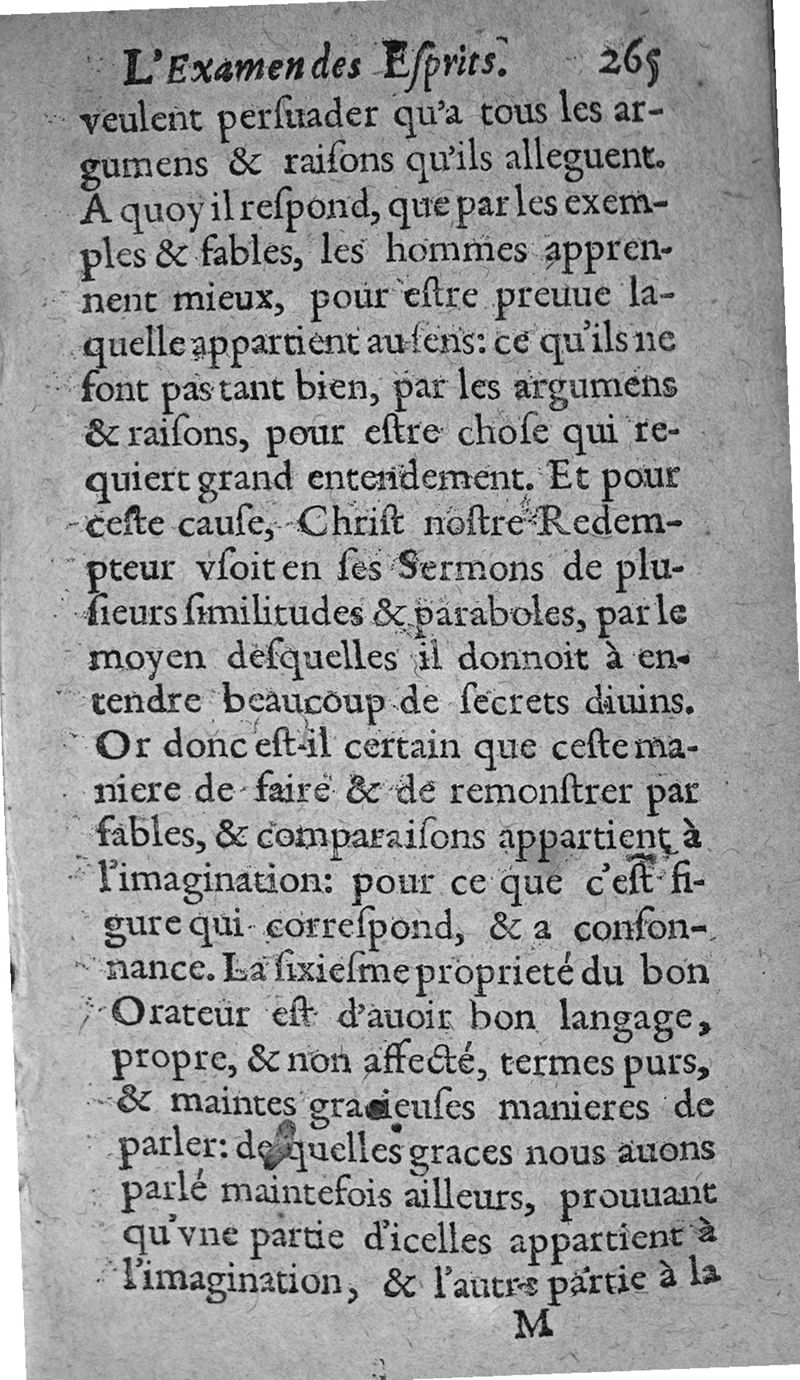 L'Examen des Eſprits. 265
veulent perſuader qu'a tous les ar-
gumens & raiſons qu'ils alleguent.
A quoy il reſpond, que par les exem-
ples & fables, les hommes appren-
nent mieux, pour eſtre preuue la-
quelle appartient au ſens: ce qu'ils ne
font pas tant bien, par les argumens
& raiſons, pour eſtre choſe qui re-
quiert grand entendement. Et pour
ceſte cauſe, Chriſt noſtre Redem-
pteur vſoit en ſes Sermons de plu-
ſieurs ſimilitudes & paraboles, par le
moyen deſquelles il donnoit à en-
tendre beaucoup de ſecrets diuins.
Or donc eſt-il certain que ceſte ma-
niere de faire & de remonſtrer par
fables, & comparaiſons appartient à
l'imagination: pour ce que c'eſt fi-
gure qui correſpond, & a conſon-
nance. La ſixieſme proprieté du bon
Orateur eſt d'auoir bon langage,
propre, & non affecté, termes purs,
& maintes gracieuſes manieres de
parler: deſquelles graces nous auons
parlé maintefois ailleurs, prouuant
qu'vne partie d'icelles appartient à
l'imagination, & l'autre partie à la
M